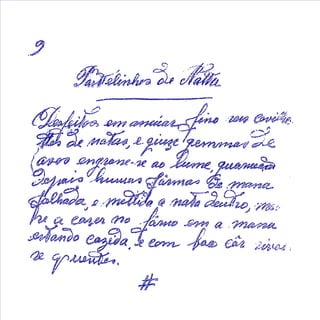 9
Pastelinhos de Natta
Desfeitos em assucar fino um
tas de natas, e quize gemmas de
ovos engrosse-se ao lume, guarnecão
depois humas fôrmas de massa
folhada, e mettida a nata dentro,
se a cozer no fôrno em a massa
estando cozida, e com boa côr
se quentes.
#